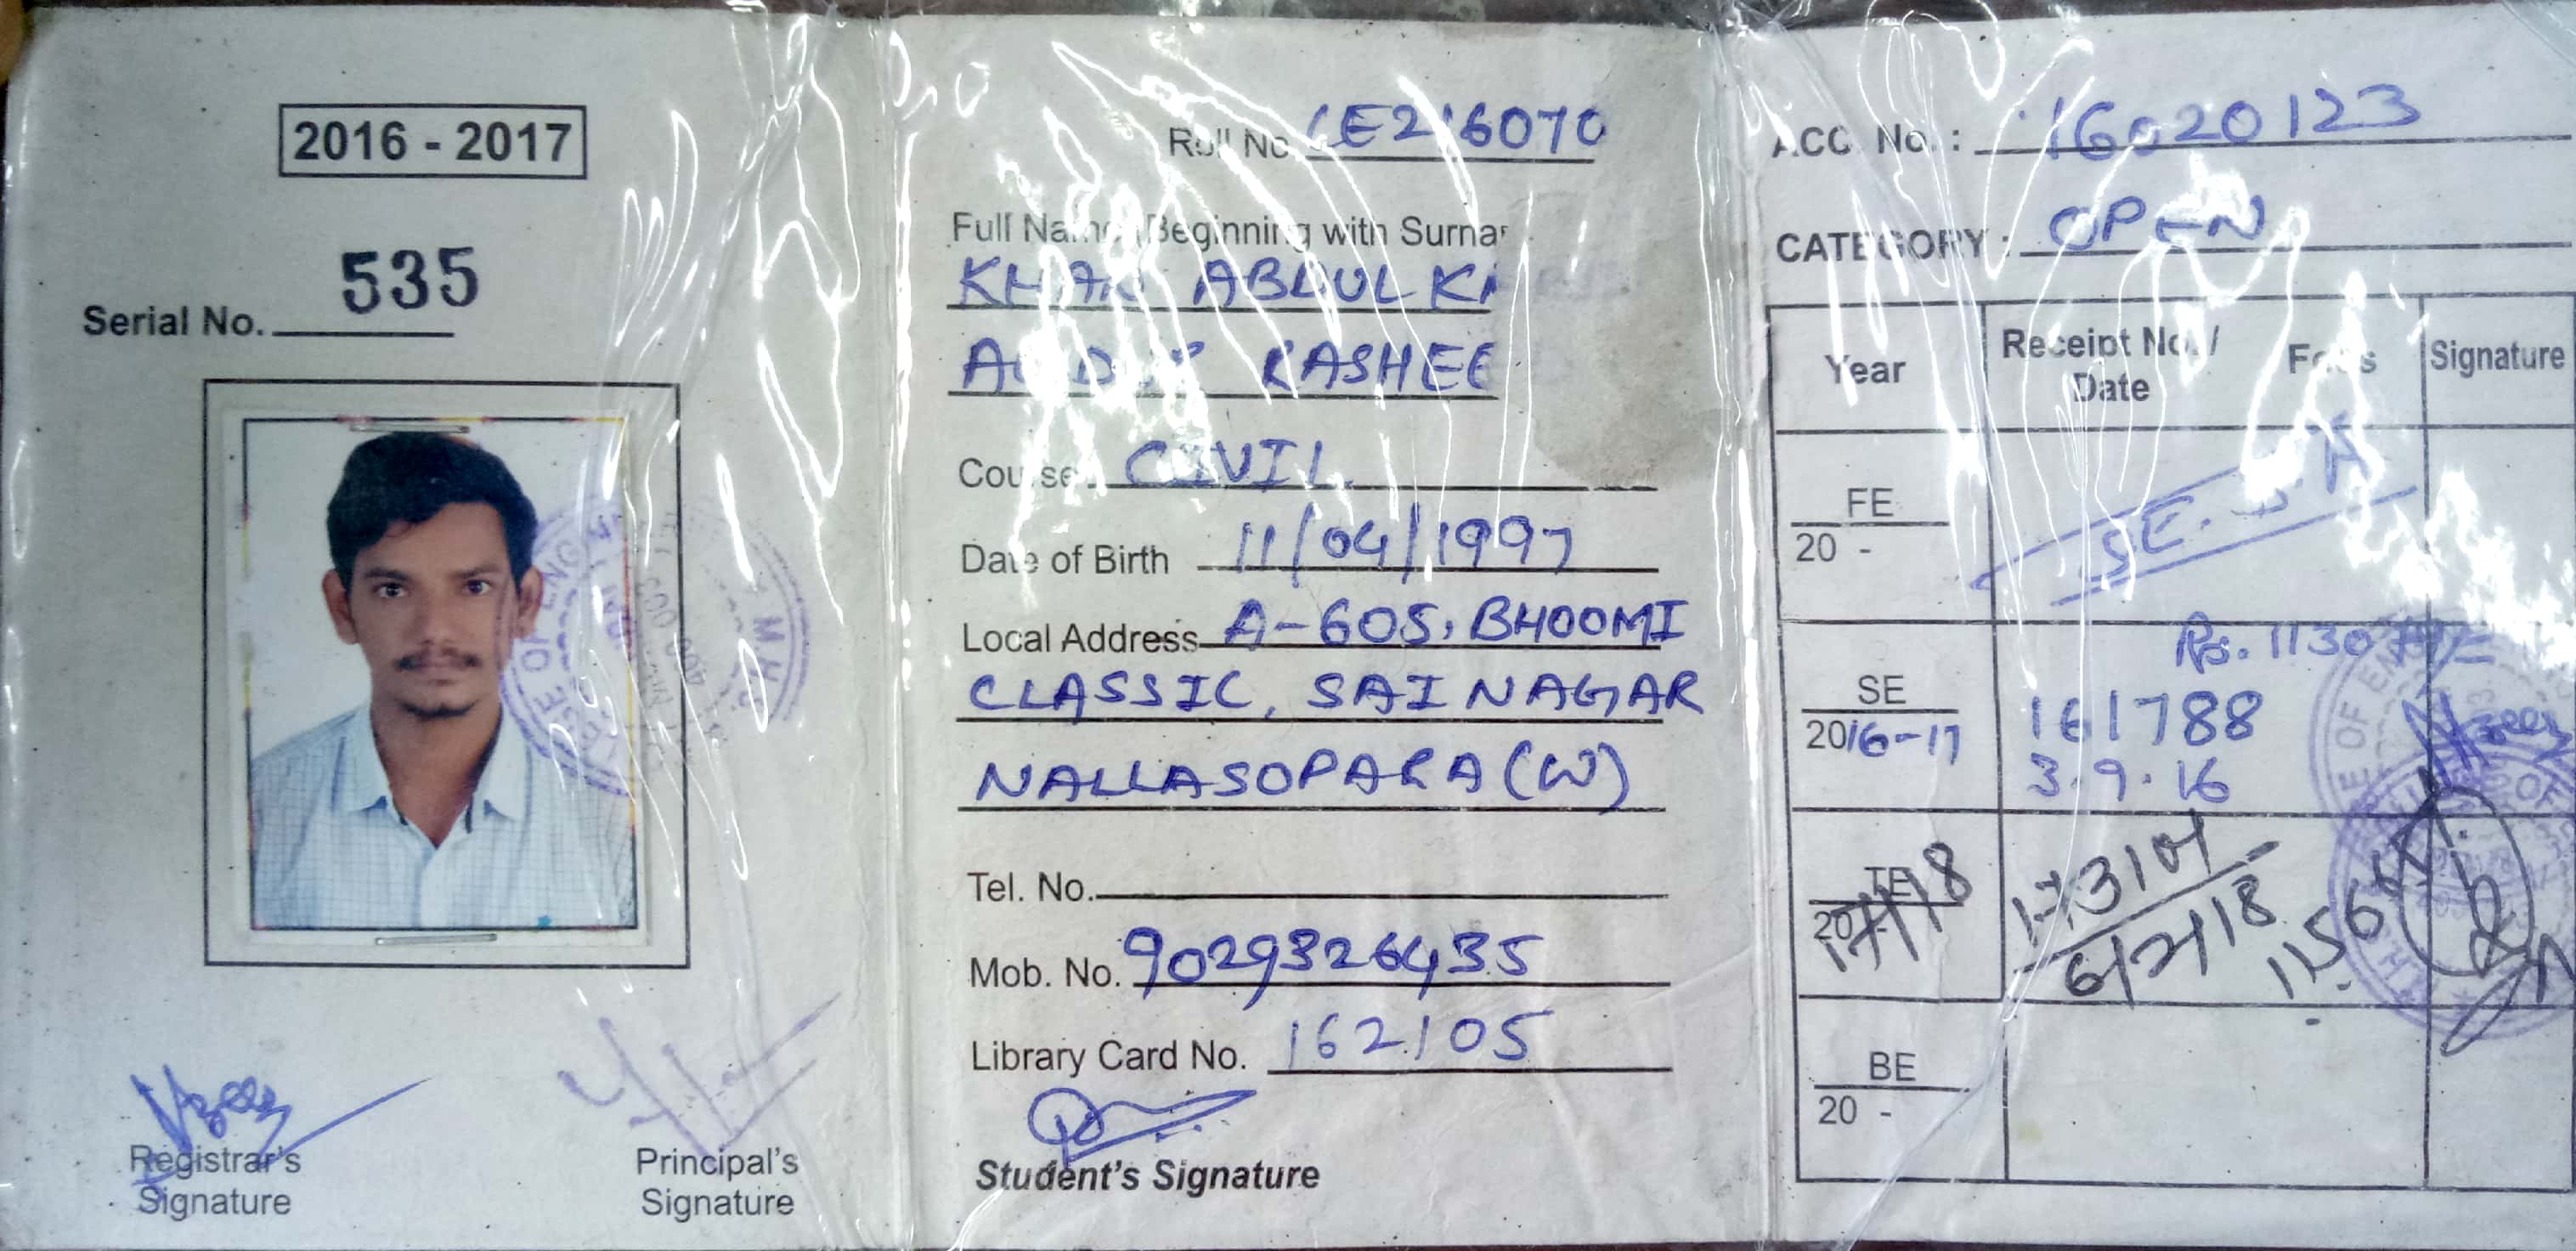 2016 - 2017
Serial No. 535
Registrar's
Signature
Principal's
Signature
Roll No. CE216070
Full Name Beginning with
KHAN ABDUL
RASHEE
Course CIVIL
Date of Birth 11/04/1997
Local Address A-605, BHOOMI
CLASSIC, SAI NAGAR
NALLASOPARA (W)
Tel. No.
Mob. No. 9029326435
Library Card No. 162105
Student's Signature
ACC. No. : 16020123
CATEGORY : OPEN
Year Receipt No. / Fees Signature
Date
FE
20 -
SE.
SE Rs.
2016-17 161788
3.9.16
TE
20
17/18 6/2/18
BE
20 -